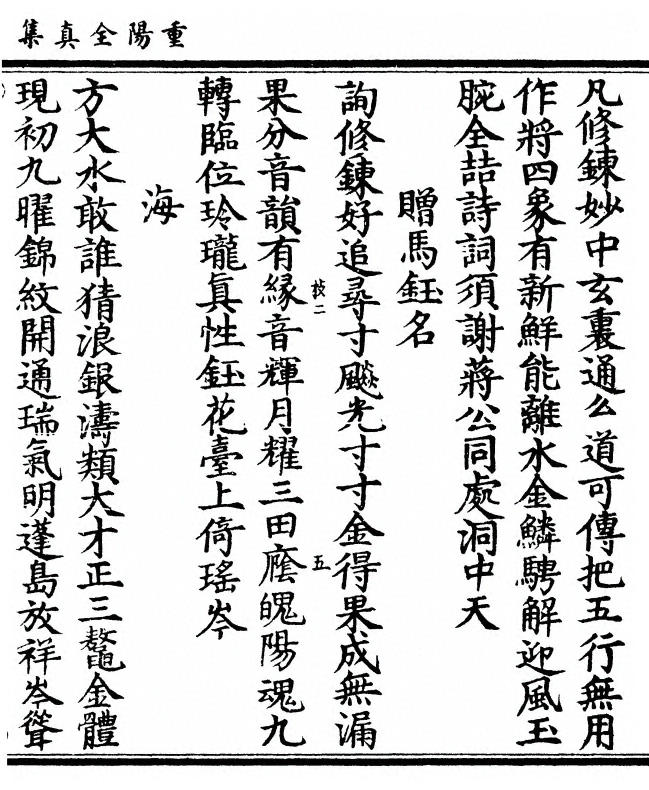 重陽全真集
凡修鍊妙中玄裏通么道可傳把五行無用
作將四象有新鮮能離水金鱗騁解迎風玉
腕全喆詩詞須謝蔣公同處洞中天
贈馬鈺名
詢修鍊好追尋寸飈光寸寸金得果成無漏
果分音韻有緣音輝月耀三田廕魄陽魂九
枝二
五
轉臨位玲瓏眞性鈺花臺上倚瑤岑
海
方大水敢誰猜浪銀濤類大才正三鼇金體
現初九曜錦紋開通瑞氣明蓬島放祥岑聳